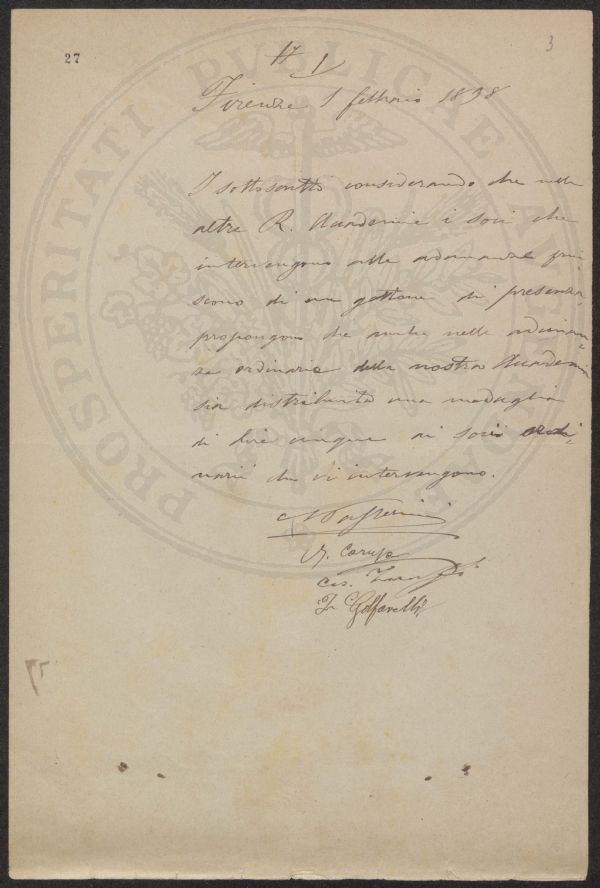 27
3
17
1
Firenze 1 febbraio 1898
I sottoscritti considerando che nelle
altre R. Accademie i soci che
intervengono alle adunanze frui-
scono di un gettone di presenza,
propongono che anche nelle adunan-
ze ordinarie della nostra Accademia
sia distribuita una medaglia
di lire cinque ai socii ordi-
narii che vi intervengono.
Passerini
G. Caruso
Ces.
I. Golfarelli
PROSPERITATI PVBLICAE AVGENDAE